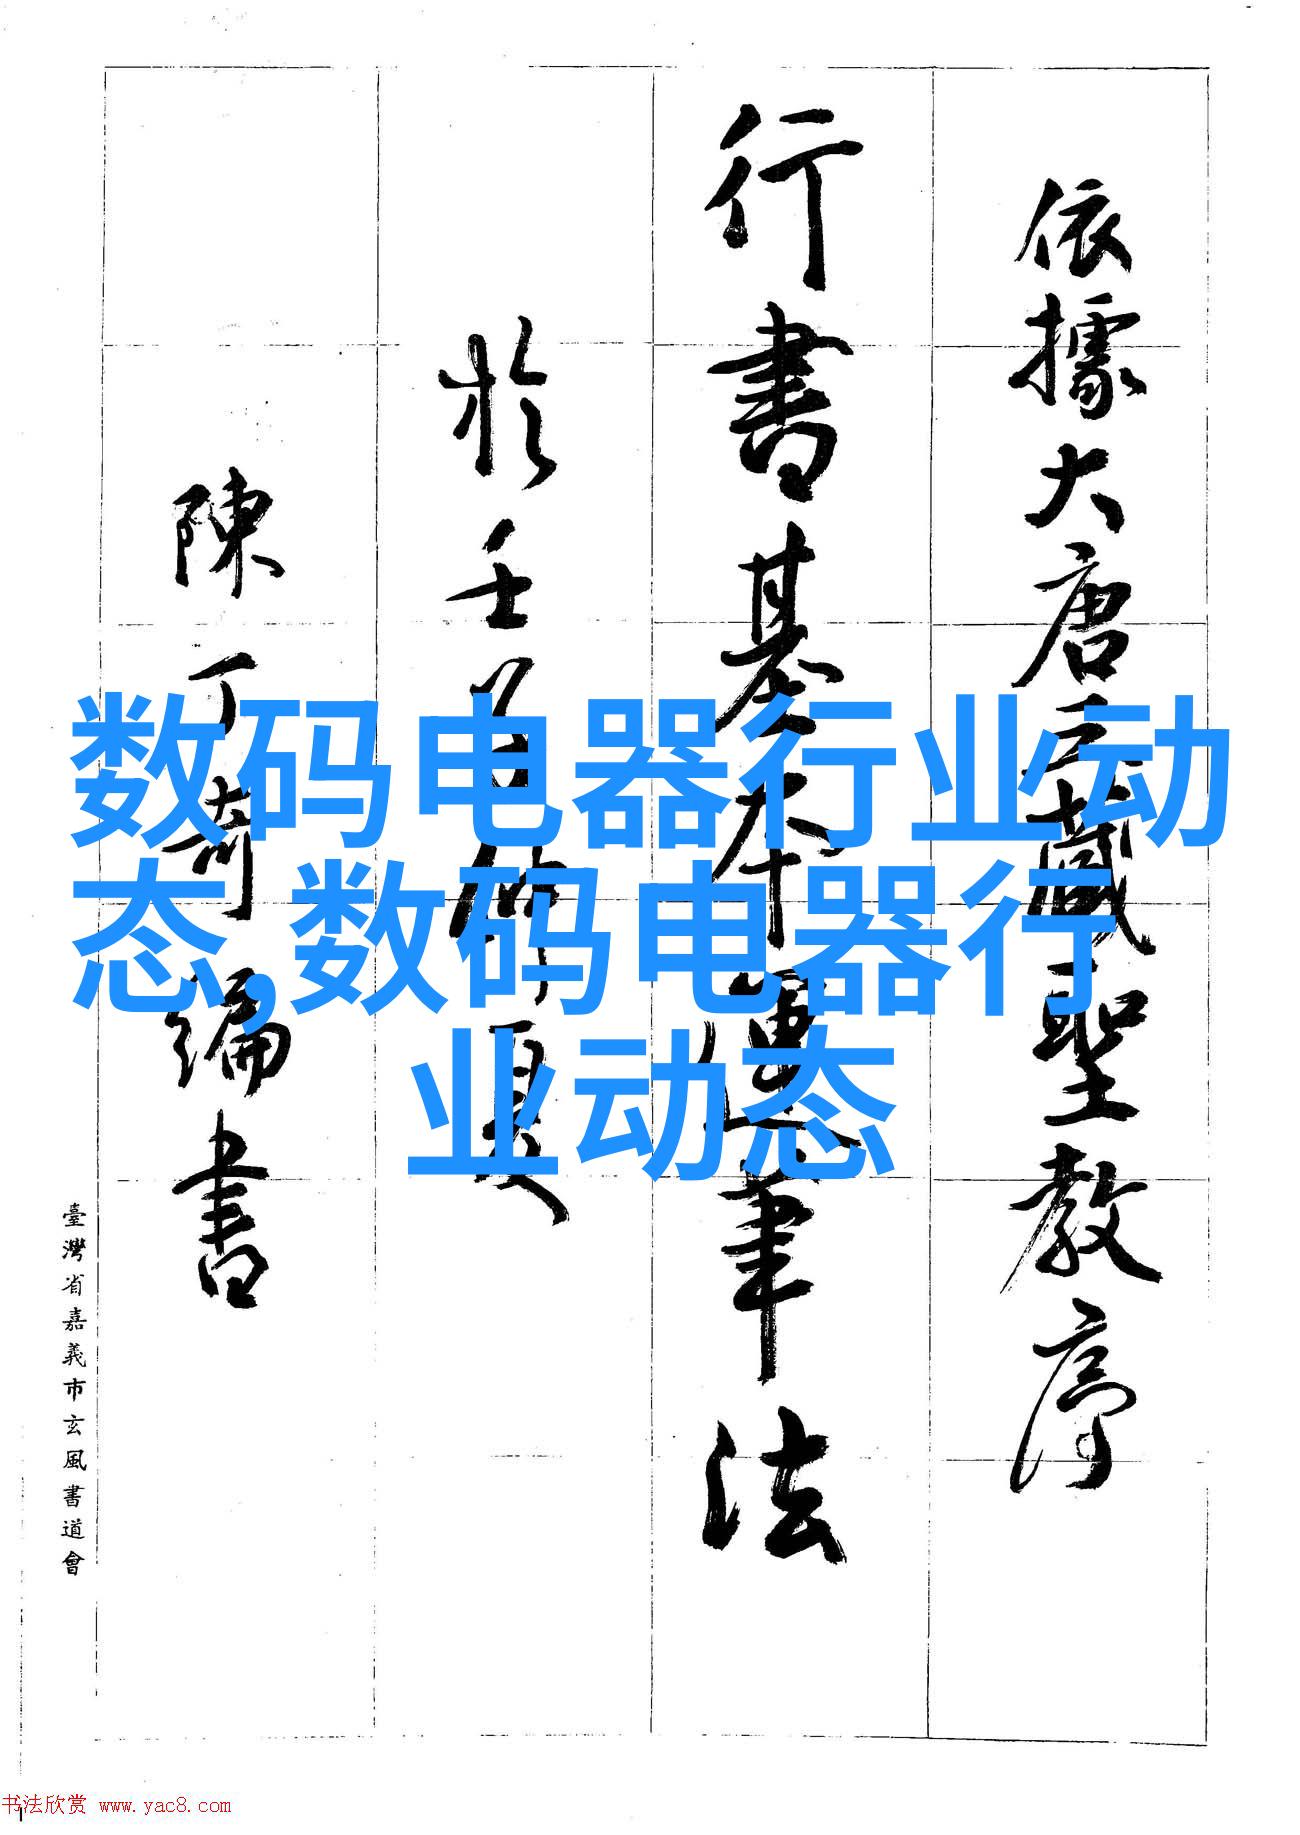 依據大唐三藏聖教序
行書基本運筆法
於壬仲夏
陳丁奇編書
臺灣省嘉義市玄風書道會
数码电器行业动
态,数码电器行
业动态
书法欣赏 www.yac8.com
1